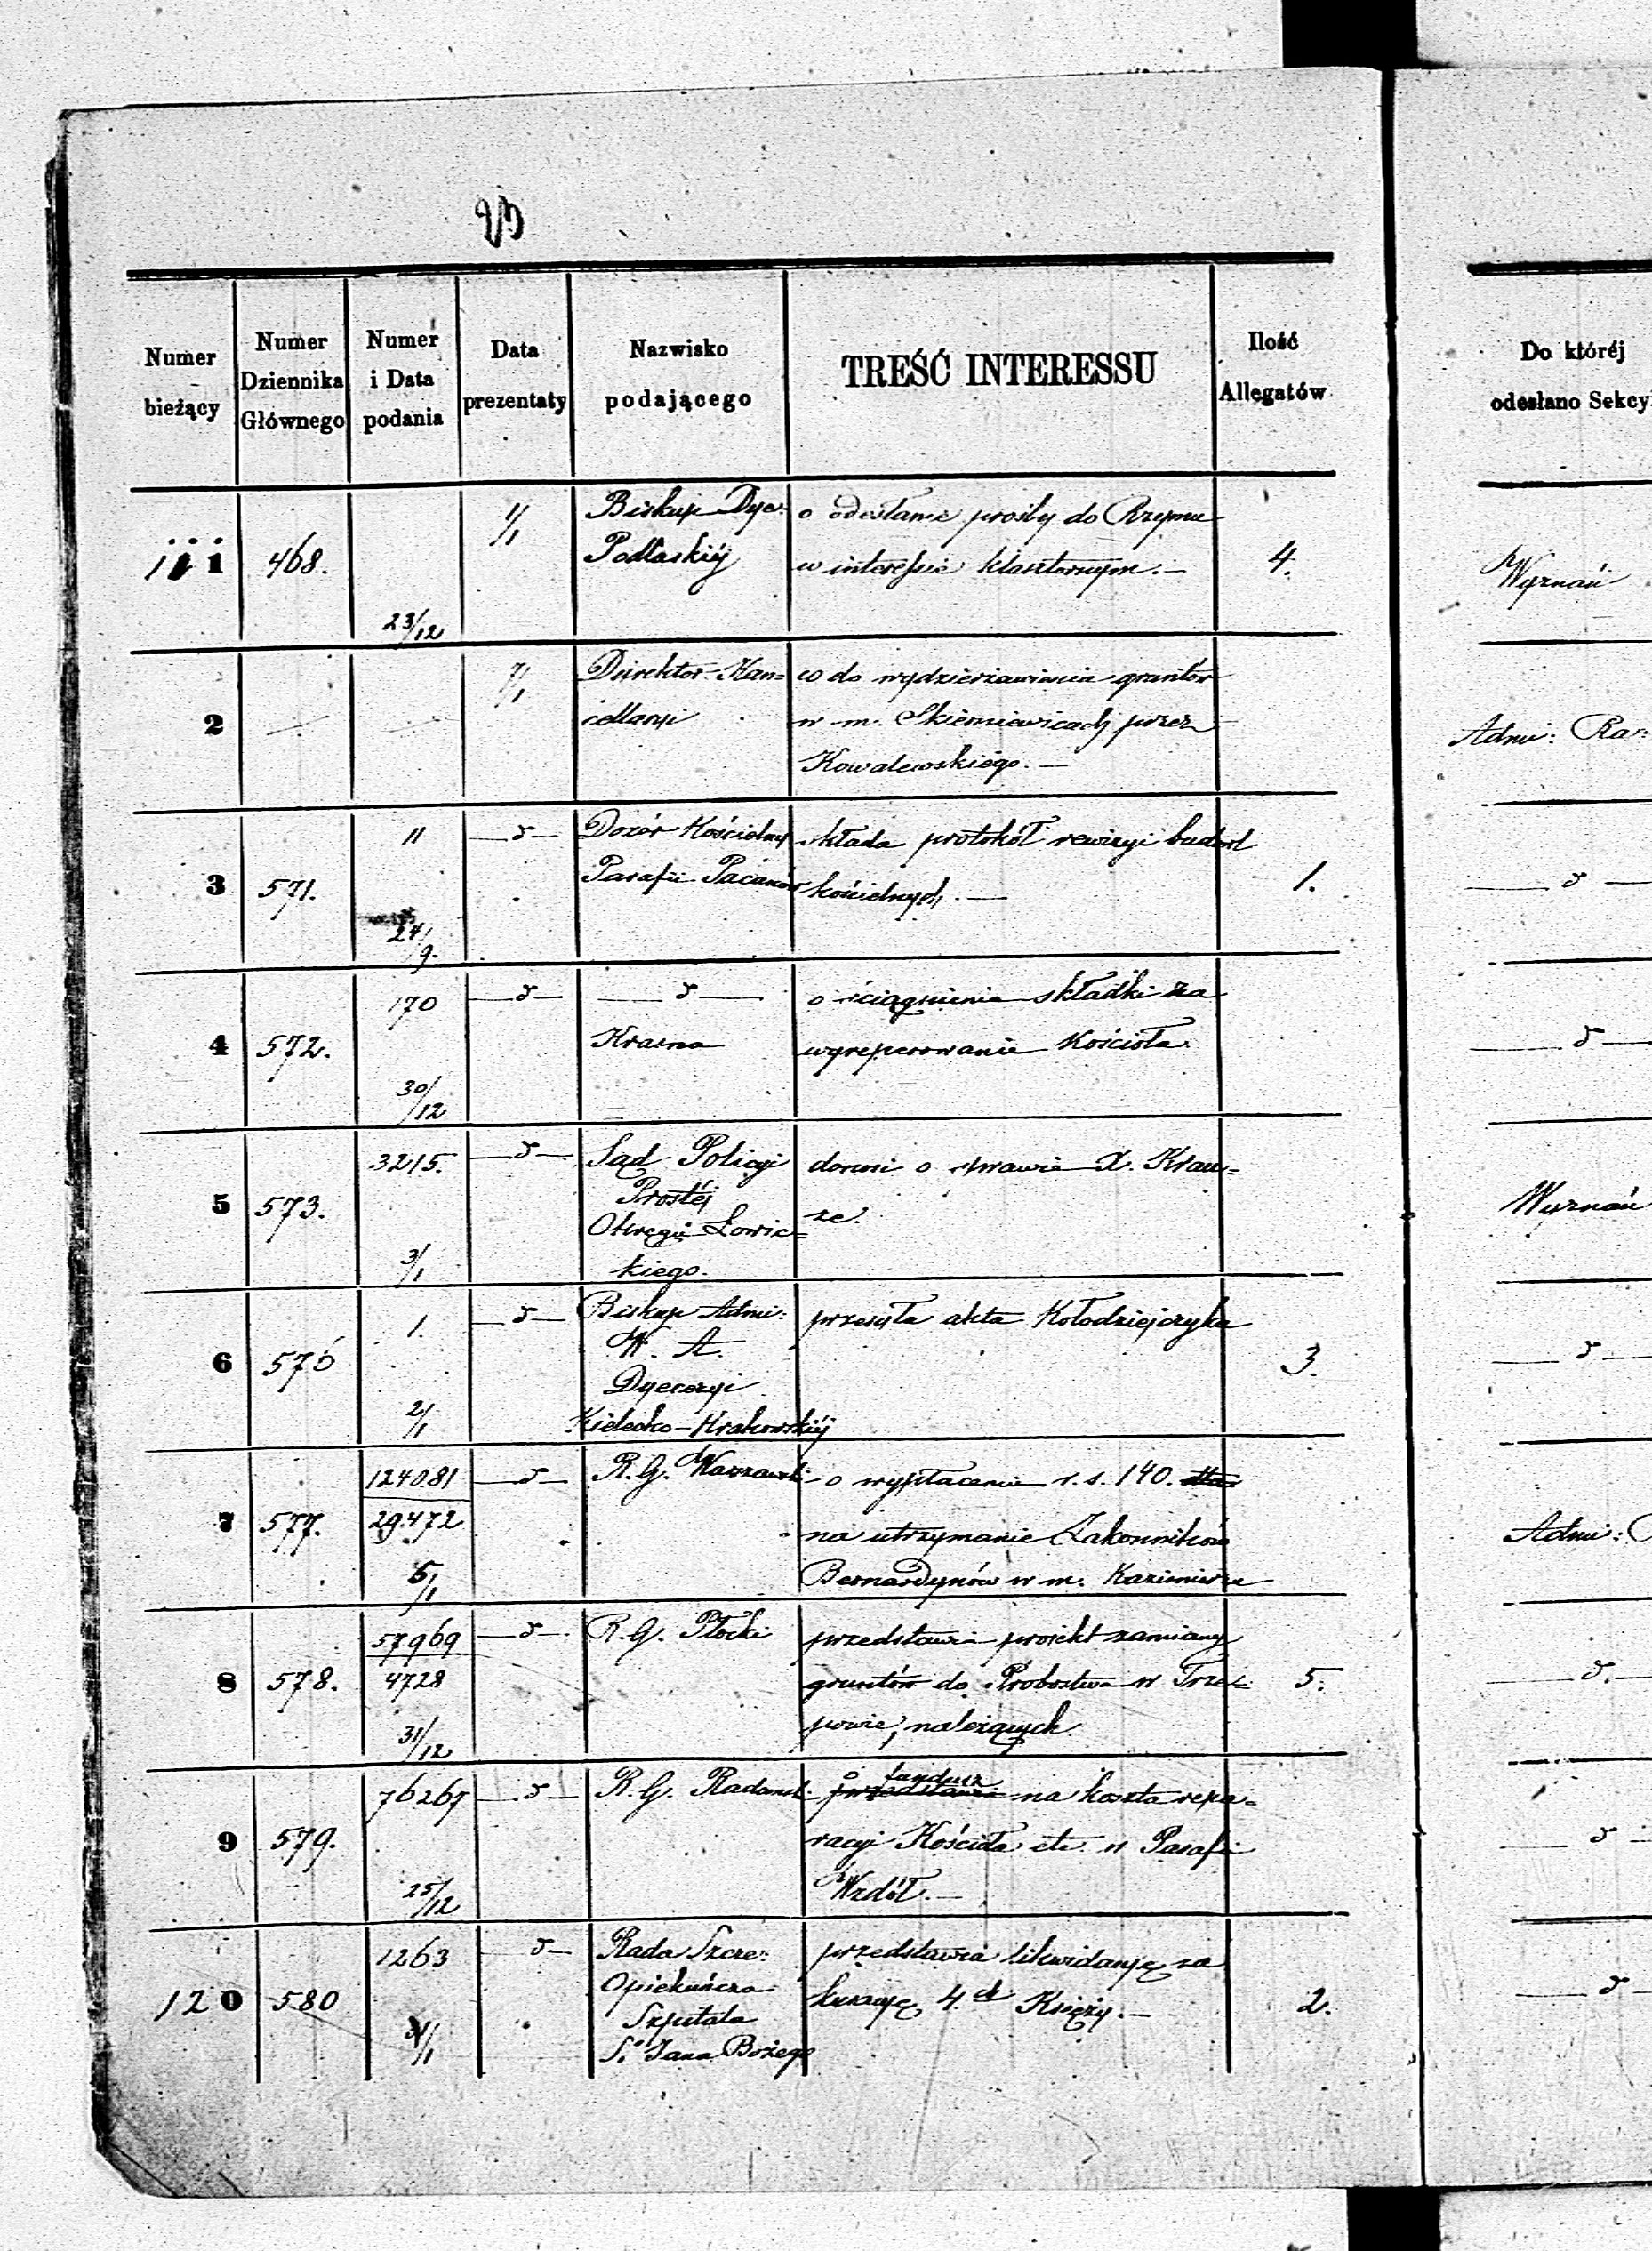 Numer bieżący
Numer Dziennika Głównego
Numer i Data podania
Data prezentaty
Nazwisko podającego
TREŚĆ INTERESSU
Ilość Allegatów
Do któréj odesłano Sekcyi
111
468.
23/12
1/1
Biskup Dyec:
Podlaskiéj
o odesłanie prośby do Rzymu
w interessie klasztornym. —
4.
Wyznań
2
7/1
Direktor Kan=
cellaryi
co do wydzierżawienia gruntów
w m. Skierniewicach przez
Kowalewskiégo. —
Admi: Ra
3
571.
11
24/9.
— d —
Dozór Kościelny
Parafii Pacanów
składa protokół rewizyi budowl
kościelnych. —
1.
— d —
4
572.
170
30/12
— d —
— d —
Krasna
o ściągnienie składki na
wyreperowanie Kościoła.
— d —
5
573.
3215.
3/1
— d —
Sąd Policyi
Prostéj
Okręgu Łowic=
kiego.
donosi o sprawie X. Krau=
ze.
Wyznań
6
576
1.
2/1
— d —
Biskup Admi:
W. A.
Dyecezyi
Kielecko-Krakowskiéj
przesyła akta Kołodziejczyka
3.
— d —
7
577.
124081
29472
5/1
— d —
R. G. Warszawski
o wypłacenie r. s. 140.
na utrzymanie Zakonników
Bernardynów w m. Kazimierzu
Admi:
8
578.
57969
4728
31/12
— d —
R. G. Płocki
przedstawia projekt zamiany
gruntów do Probostwa w Trze=
powie, należących
5.
— d. —
9
579.
76267
25/12
— d —
R. G. Radomski
o fundusz
przedstawia na koszta repa=
racyi Kościoła etc. w Parafii
Wzdół. —
— d —
120
580
1263
— d —
Rada Szcze:
Opiekuńcza
Szpitala
S.º Jana Bożego
przedstawia likwidacyę za
kuracyę 4.ch Księży. —
2.
— d —